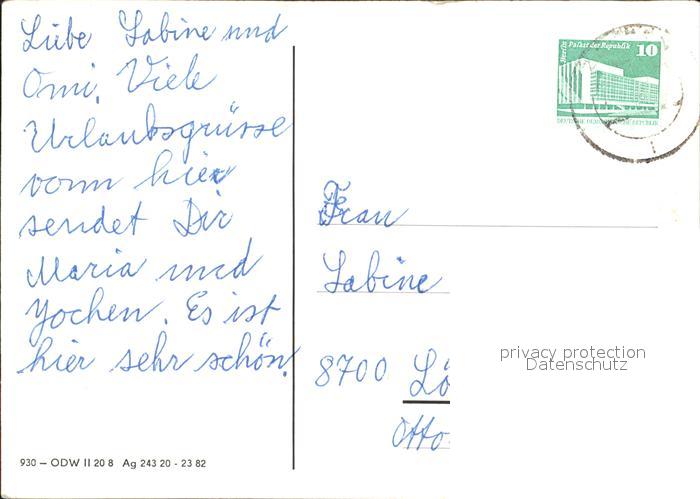 Liebe Sabine und
Omi. Viele
Urlaubsgrüsse
vom hier
sendet Dir
Maria und
Jochen. Es ist
hier sehr schön!
930 — ODW II 20 8 Ag 243 20 - 23 82
Berlin Palast der Republik
10
DEUTSCHE DEMOKRATISCHE REPUBLIK
Frau
Sabine
8700 Lö
Otto
privacy protection
Datenschutz